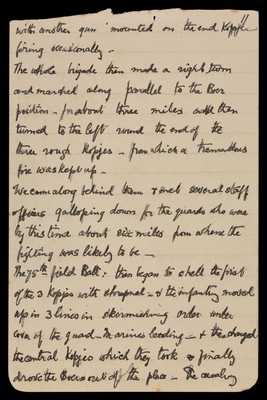 with another gun mounted on the end Kopje
firing occasionally -
The whole brigade then made a right turn
and marched along parallel to the Boer
position - for about three miles & then
turned to the left round the end of the
three rough Kopjes - from which a tremendous
fire was kept up -
We came along behind them & met several staff
officers galloping down for the guards who were
by this time about six miles from where the
fighting was likely to be -
The 75th field Batt: then began to shell the first
of the 3 Kopjes with shrapnel - & the infantry moved
up in 3 lines in skirmishing order under
cover of the guns - Marines leading - & then charged
the central Kopjes which they took & finally
drove the Boers out of the place - The cavalry